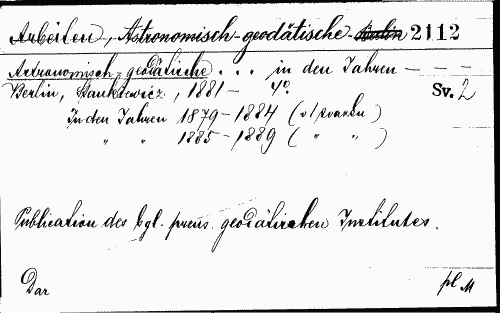 Arbeiten, Astronomisch-geodätische Berlin 2112
Astronomisch-geodätische . . . in den Jahren — — —
Berlin, Stankiewicz, 1881 — 4°. Sv. 2
In den Jahren 1879–1884 (v 1 svazku)
" " 1885–1889 ( " " )
Publication des kgl. preus. geodätischen Institutes.
Dar